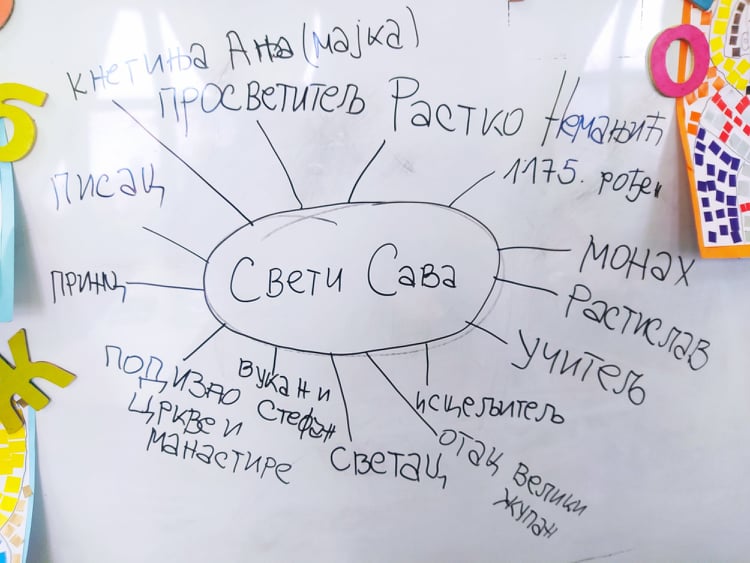 кнегиња Ана (мајка)
просветитељ
Растко Немањић
1175. рођен
писац
принц
Свети Сава
монах
Растислав
учитељ
исцељитељ
отац велики
жупан
светац
Вукан и
Стефан
подизао
цркве и
манастире